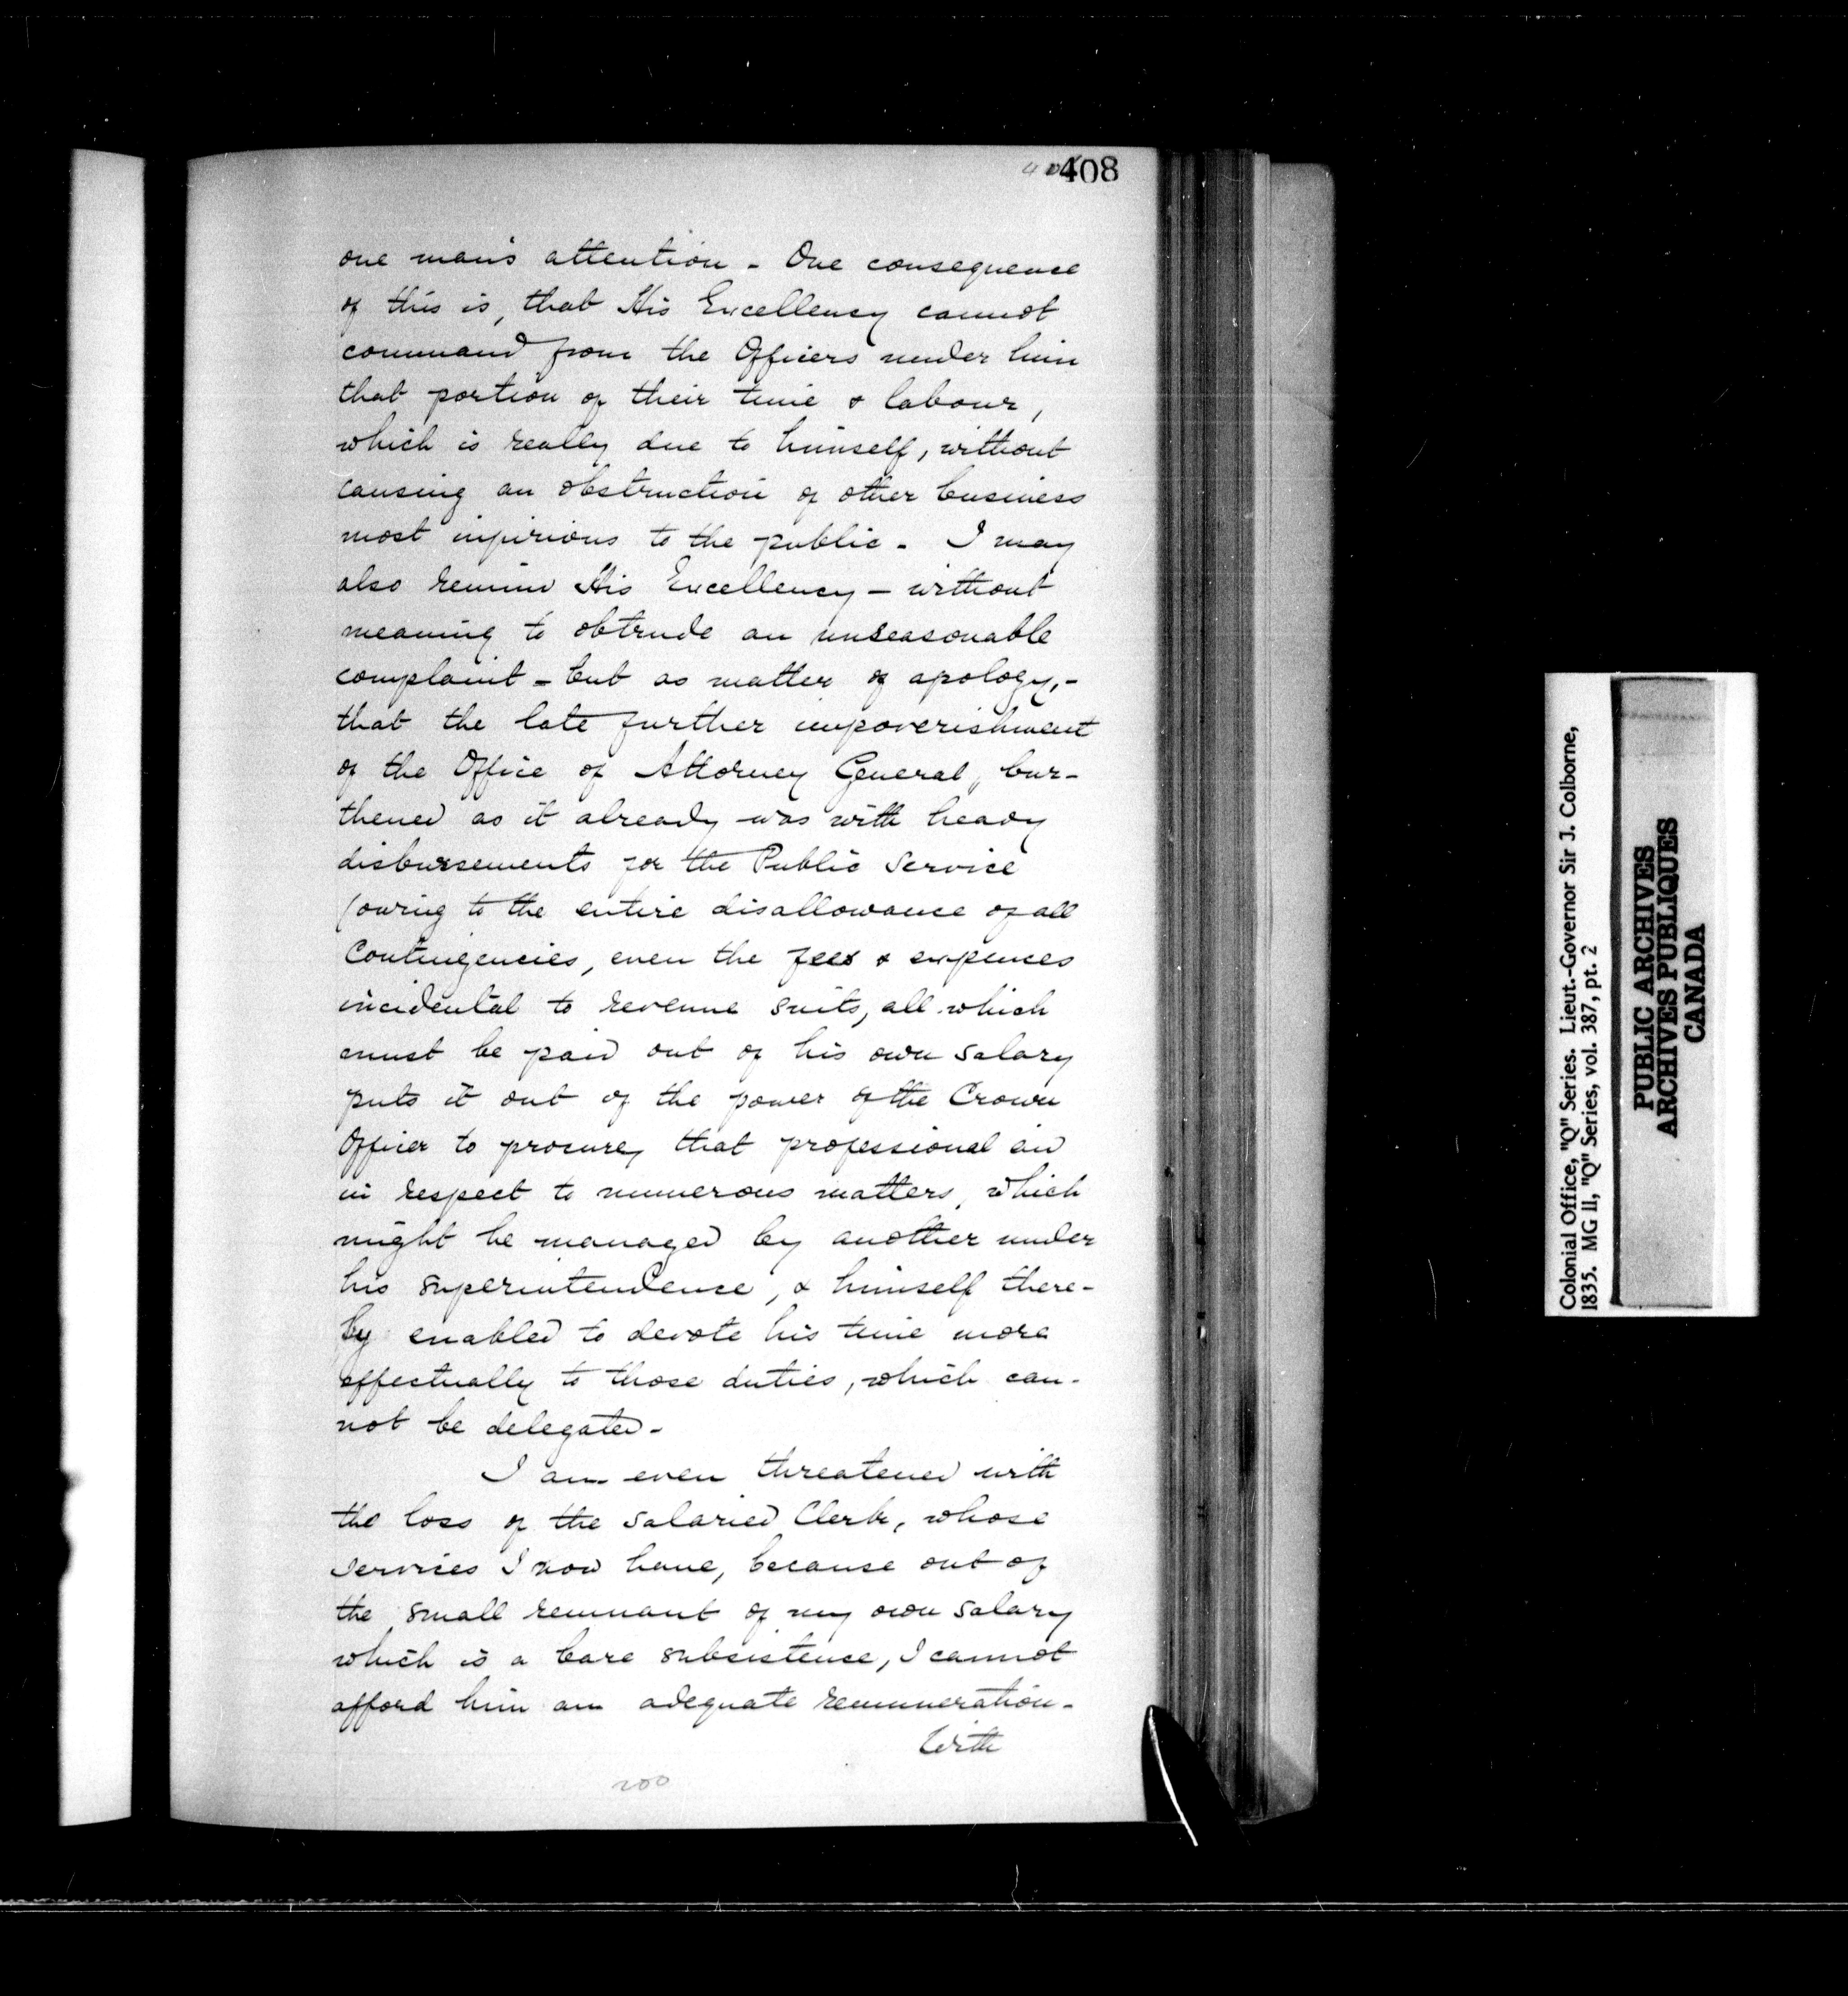 408
one man's attention - One consequence
of this is, that His Excellency cannot
command from the Officers under him
that portion of their time & labour,
which is really due to himself, without
causing an obstruction of other business
most injurious to the public - I may
also remind His Excellency - without
meaning to obtrude an unseasonable
complaint - but as matter of apology, -
that the late further impoverishment
of the Office of Attorney General, bur-
thened as it already was with heavy
disbursements for the Public Service
(owing to the entire disallowance of all
Contingencies, even the fees & expences
incidental to revenue suits, all which
must be paid out of his own salary
puts it out of the power of the Crown
Officer to procure, that professional aid
in respect to numerous matters, which
might be managed by another under
his superintendence, & himself there-
by enabled to devote his time more
effectually to those duties, which can-
not be delegated -
I am even threatened with
the loss of the salaried Clerk, whose
services I now have, because out of
the small remnant of my own salary
which is a bare subsistence, I cannot
afford him an adequate remuneration -
With
200
Colonial Office, "Q" Series. Lieut.-Governor Sir J. Colborne,
1835. MG 11, "Q" Series, vol. 387, pt. 2
PUBLIC ARCHIVES
ARCHIVES PUBLIQUES
CANADA